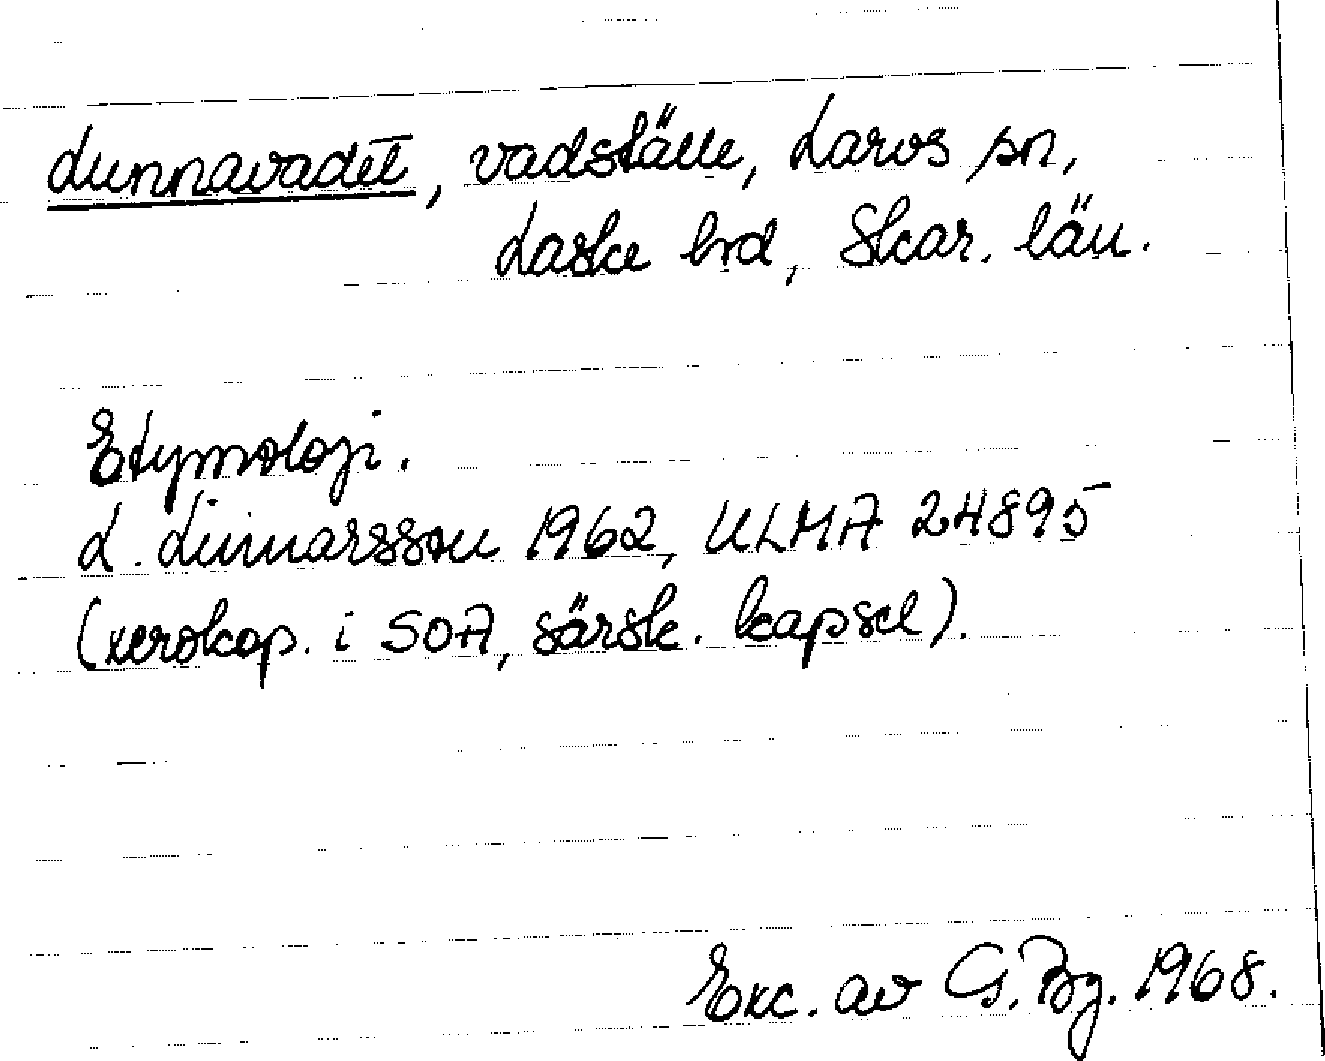 Lunnavadet, vadställe, Laros sn,
Laske hd, Skar. län.
Etymologi.
L. Linnarsson 1962, ULMA 24895
(xerokop. i SOA, särsk. kapsel).
Exc. av G. Bg. 1968.